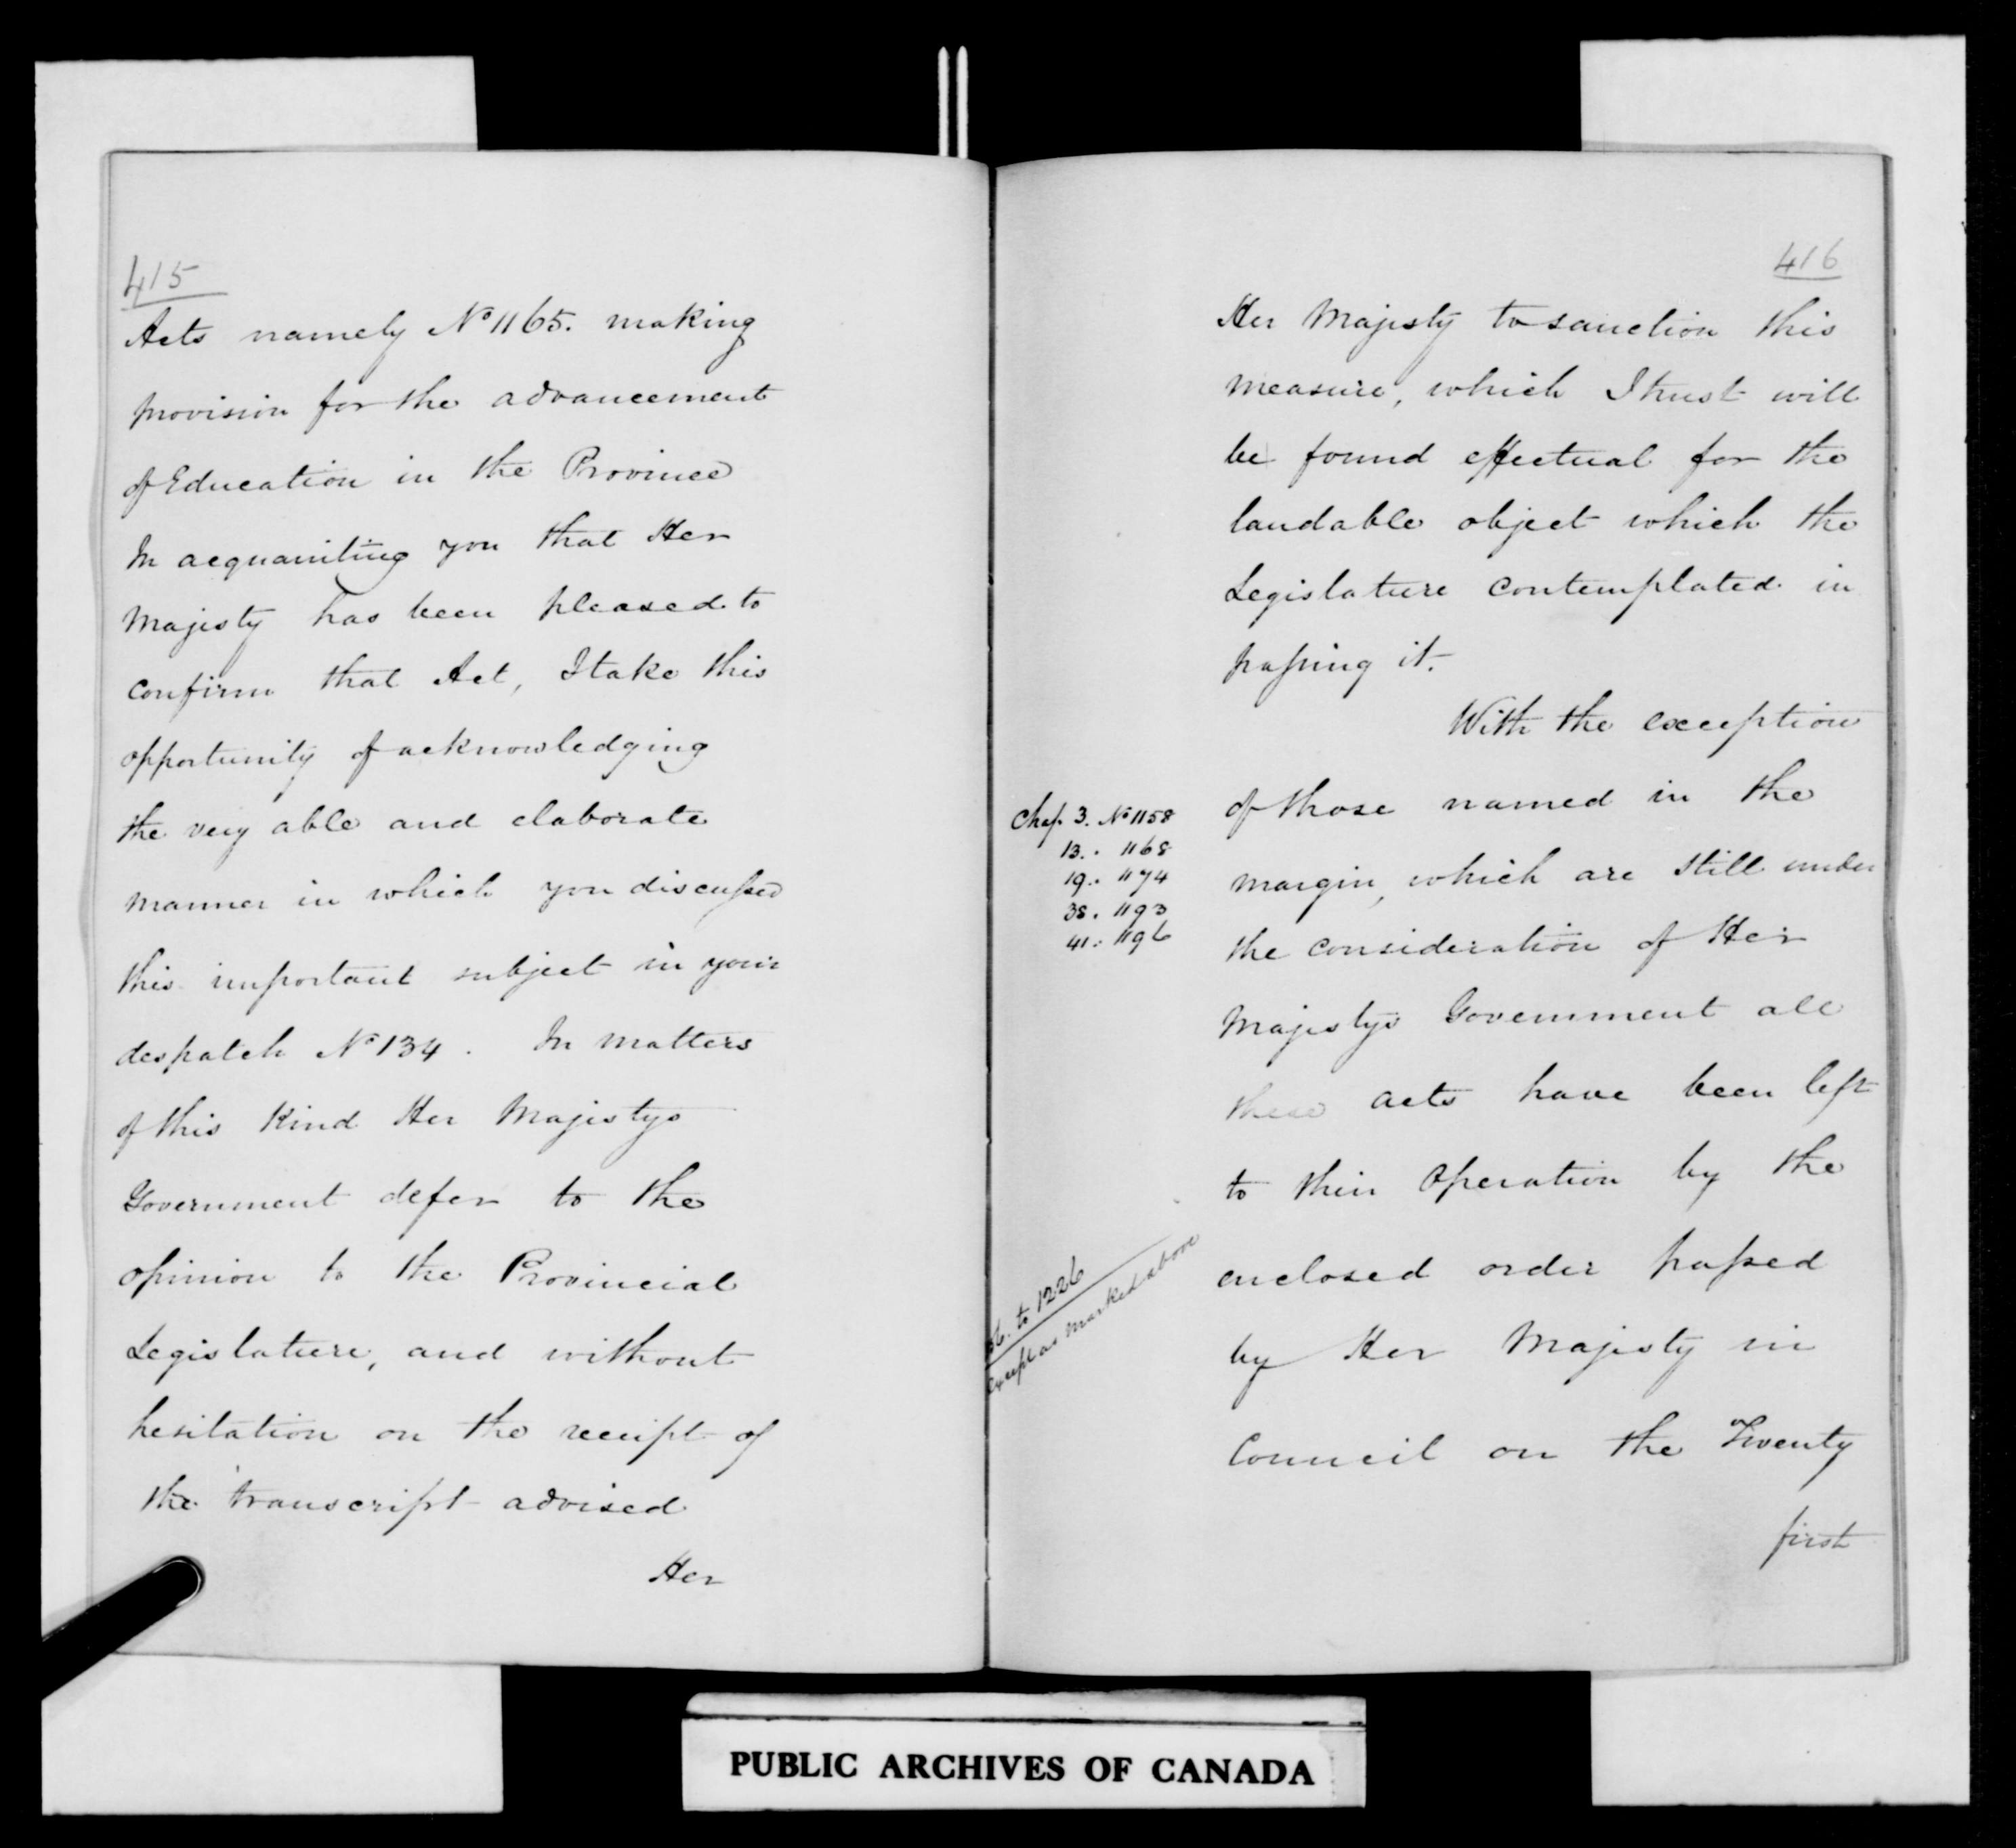 415
Acts namely No 1165. making
provision for the advancement
of Education in the Province
In acquainting you that Her
Majesty has been pleased to
confirm that Act, I take this
opportunity of acknowledging
the very able and elaborate
manner in which you discussed
this important subject in your
despatch No 134. In matters
of this Kind Her Majestys
Government defer to the
opinion to the Provincial
Legislature, and without
hesitation on the receipt of
the transcript advised
Her
416
Her Majesty to sanction this
measure, which I trust will
be found effectual for the
laudable object which the
Legislature contemplated in
passing it.
With the exception
of those named in the
margin, which are still under
the consideration of Her
Majestys Government all
these acts have been left
to their Operation by the
enclosed order passed
by Her Majesty in
Council on the Twenty
first
Chap. 3. No 1158
13. . 1168
19. . 1174
38. 1193
41. . 1196
56. to 1226
except as marked above
PUBLIC ARCHIVES OF CANADA